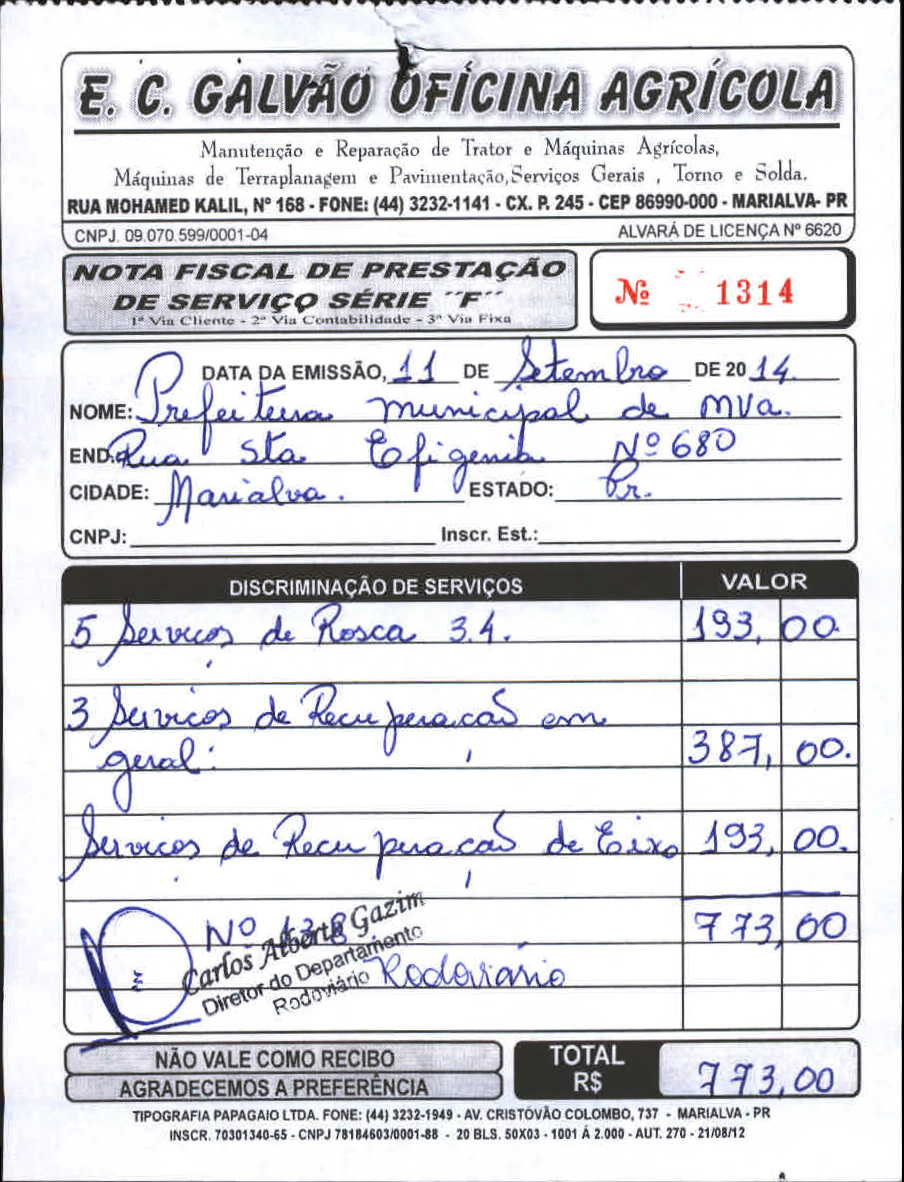 E. C. GALVÃO OFICINA AGRÍCOLA
Manutenção e Reparação de Trator e Máquinas Agrícolas,
Máquinas de Terraplanagem e Pavimentação, Serviços Gerais , Torno e Solda.
RUA MOHAMED KALIL, Nº 168 - FONE: (44) 3232-1141 - CX. P. 245 - CEP 86990-000 - MARIALVA- PR
CNPJ. 09.070.599/0001-04 ALVARÁ DE LICENÇA Nº 6620
NOTA FISCAL DE PRESTAÇÃO
DE SERVIÇO SÉRIE ´´F´´
1ª Via Cliente - 2ª Via Contabilidade - 3ª Via Fixa
Nº 1314
DATA DA EMISSÃO, 11 DE Setembro DE 20 14.
NOME: Prefeitura municipal de mva.
END. Rua Sta Efigenia Nº 680
CIDADE: Marialva. ESTADO: Pr.
CNPJ: Inscr. Est.:
DISCRIMINAÇÃO DE SERVIÇOS VALOR
5 Serviços de Rosca 3.4. 193,00.
3 Serviços de Recuperação em
geral. 387,00.
Serviços de Recuperação de Eixo 193,00.
Nº 138. 773,00
Carlos Alberto Gazim
Diretor do Departamento
Rodoviário
Rodoviário
NÃO VALE COMO RECIBO
AGRADECEMOS A PREFERÊNCIA
TOTAL R$ 773,00
TIPOGRAFIA PAPAGAIO LTDA. FONE: (44) 3232-1949 - AV. CRISTÓVÃO COLOMBO, 737 - MARIALVA - PR
INSCR. 70301340-65 - CNPJ 78184603/0001-88 - 20 BLS. 50X03 - 1001 Á 2.000 - AUT. 270 - 21/08/12